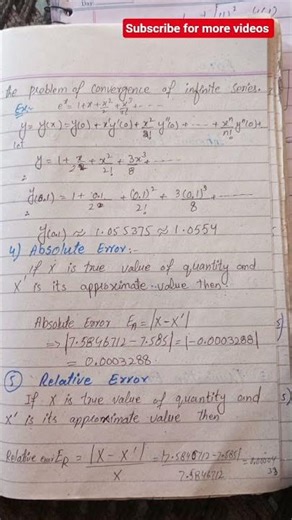 Subscribe for more videos
the problem of convergence of infinite series.
Ex:- e^x = 1+x+x²/2!+x³/3!+ -----
y = y(x) = y(0) + x y'(0) + x²/2! y''(0) + ----- + x^n/n! y^n(0) +
y = 1 + x/2 + x²/2! + 3x³/8 + ------
y(0.1) = 1 + 0.1/2 + (0.1)²/2! + 3(0.1)³/8 + ------
y(0.1) ≈ 1.055375 ≈ 1.0554
4) Absolute Error:-
If X is true value of quantity and
X' is its approximate value then
Absolute Error E_A = |X-X'|
=> |7.5846712-7.585| = |-0.0003288|
= 0.0003288
⑤ Relative Error
If X is true value of quantity and
X' is its approximate value then
Relative error E_R = |X-X'|/X = |7.5846712-7.585|/7.5846712